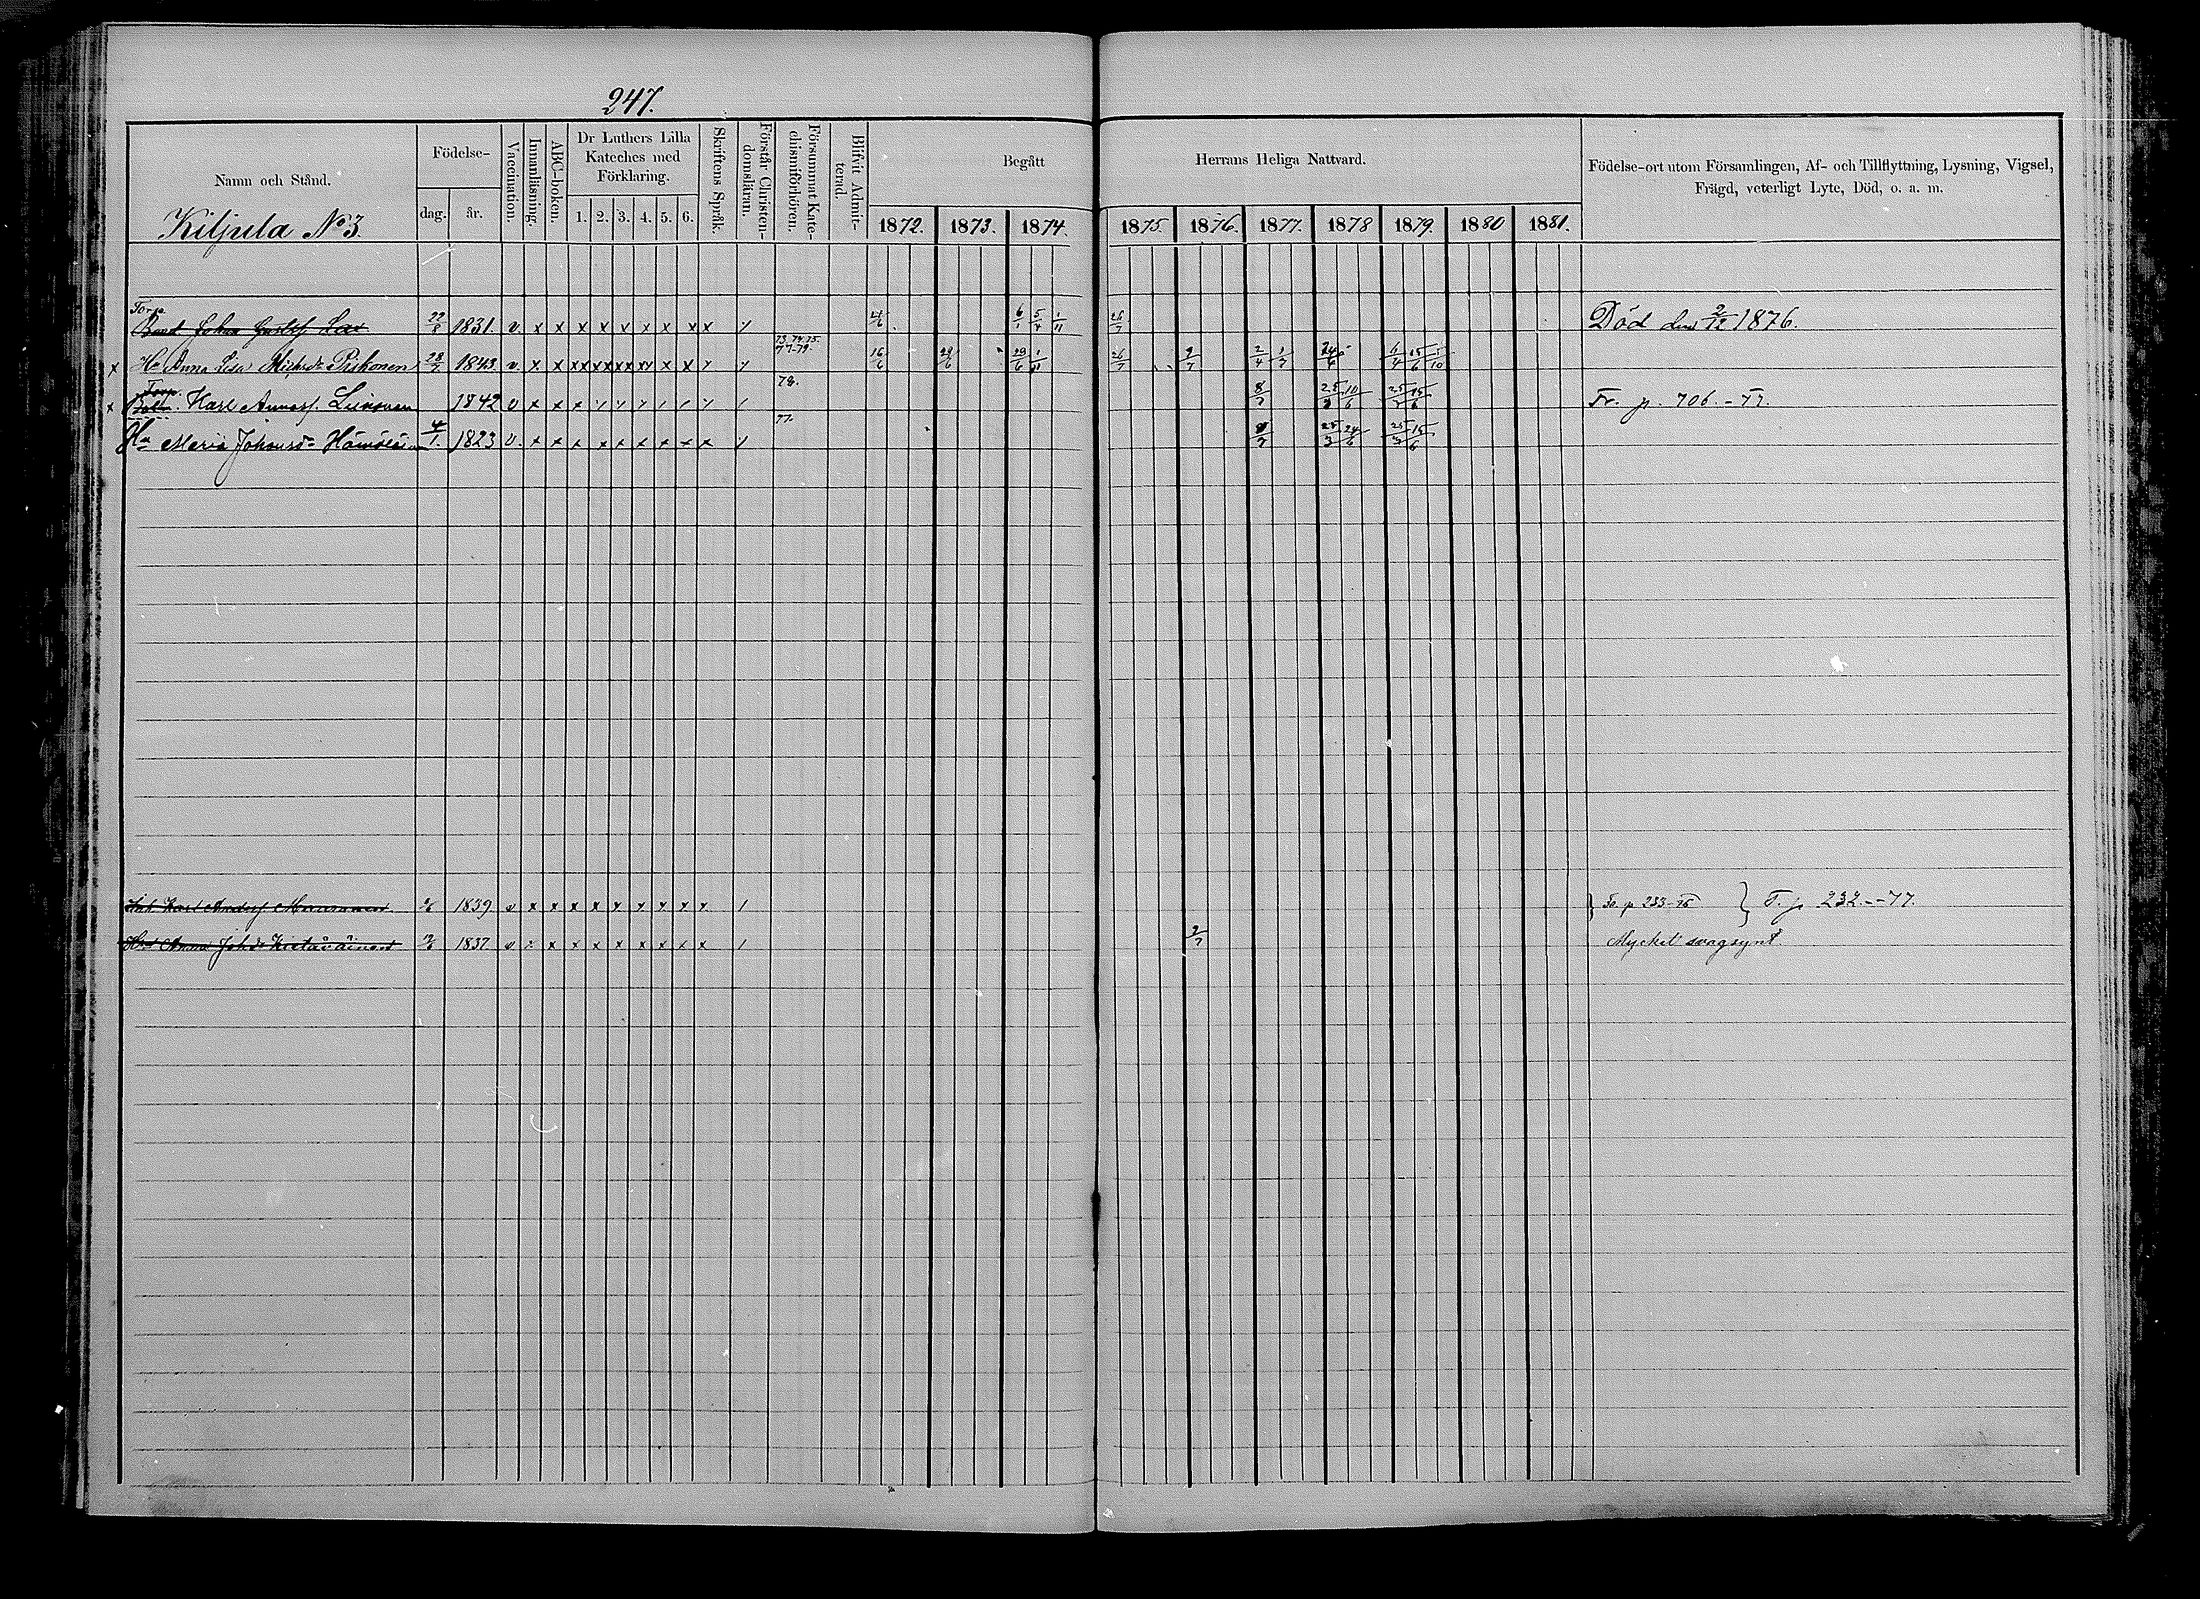 247.
Namn och Stånd.
Födelse-
dag.
år.
Vaccination.
Innanläsning.
ABC-boken.
Dr Luthers Lilla
Kateches med
Förklaring.
1. 2. 3. 4. 5. 6.
Skriftens Språk.
Förstår Christen-
domsläran.
Försummat Kate-
chismiförhören.
Blifvit Admit-
terad.
Begått Herrans Heliga Nattvard.
1872. 1873. 1874. 1875 1876. 1877. 1878 1879. 1880 1881.
Födelse-ort utom Församlingen, Af- och Tillflyttning, Lysning, Vigsel,
Frägd, veterligt Lyte, Död, o. a. m.
Kiljula No 3.
Torp.
Johan Gustaf 22/8 1831. v. x x x x x x x x x x 6/1 5/4 1/11 26/7 Död den 2/12 1876.
73. 74. 75.
77-79.
x Hu Anna Lisa Michelsdr Piskonen 28/7 1843 v. x x xx xx xx xx x x 16/6 29/6 29/6 1/11 26/7 9/7 2/4 1/7 24/6 6/4 15/6 5/10
Torp. 78.
x Karl Annasf. 1842 v x x x 8/7 25/3 10/6 25/3 15/6 Fr. p. 706.-77.
77.
Hu Maria Johansdr 4/1. 1823 v. x x x x x x x x x x 8/7 25/3 24/6 25/3 15/6
Karl Andersf 1839 v x x x x x x x x Fr. p 233-76 } F. p 232.--77.
Anna Johdr 1837 v x x x x x x x x x 9/7 Mycket svagsynt